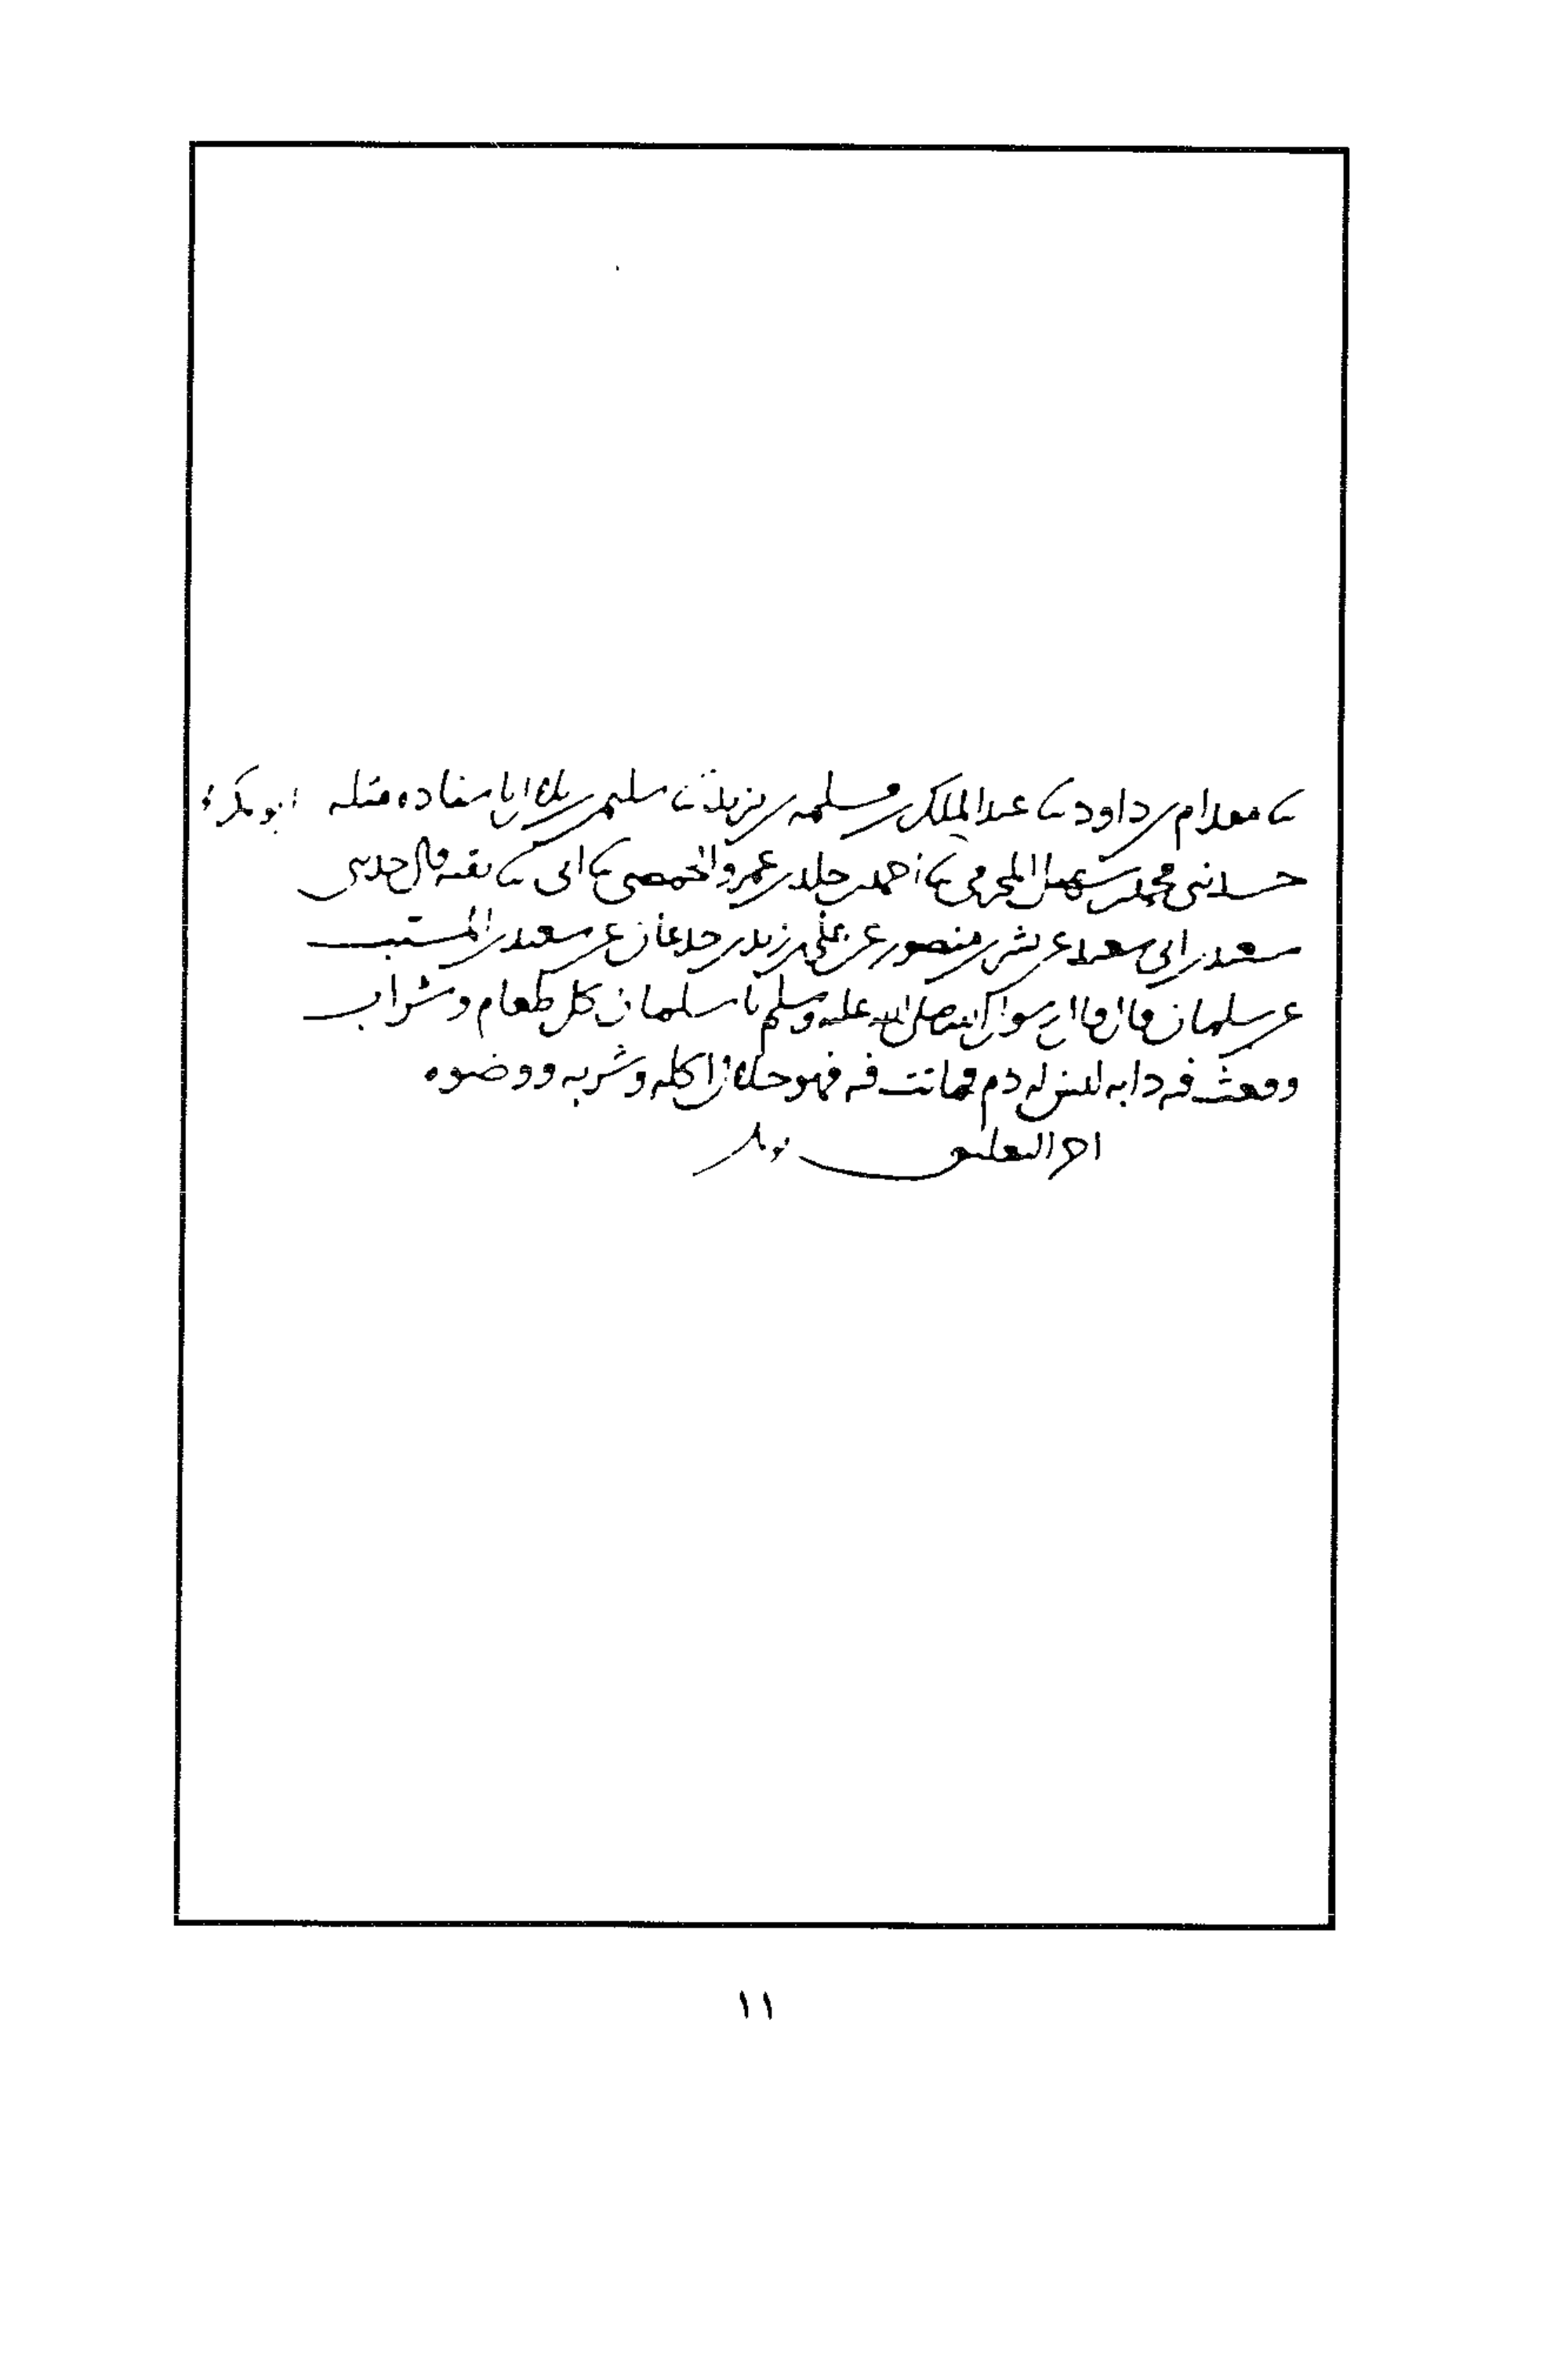 ثنا مقدام بن داود ثنا عبد الملك بن مسلمة بن يزيد ثنا سليم بن بلال باسناده مثله ابو بكر
حدثني محمد بن سهيل ثنا احمد بن خلد بن عمرو الحمصي ثنا ابي ثنا بقية قال حدثني
سعيد بن ابي سعيد عن بشر بن منصور عن علي بن زيد بن جدعان عن سعيد بن المسيب
عن سلمان قال قال رسول الله صلى الله عليه وسلم يا سلمان كل طعام وشراب
وقعت فيه دابة ليس له دم فماتت فيه فهو حلال اكله وشربه ووضوه
اخر التعليق
١١